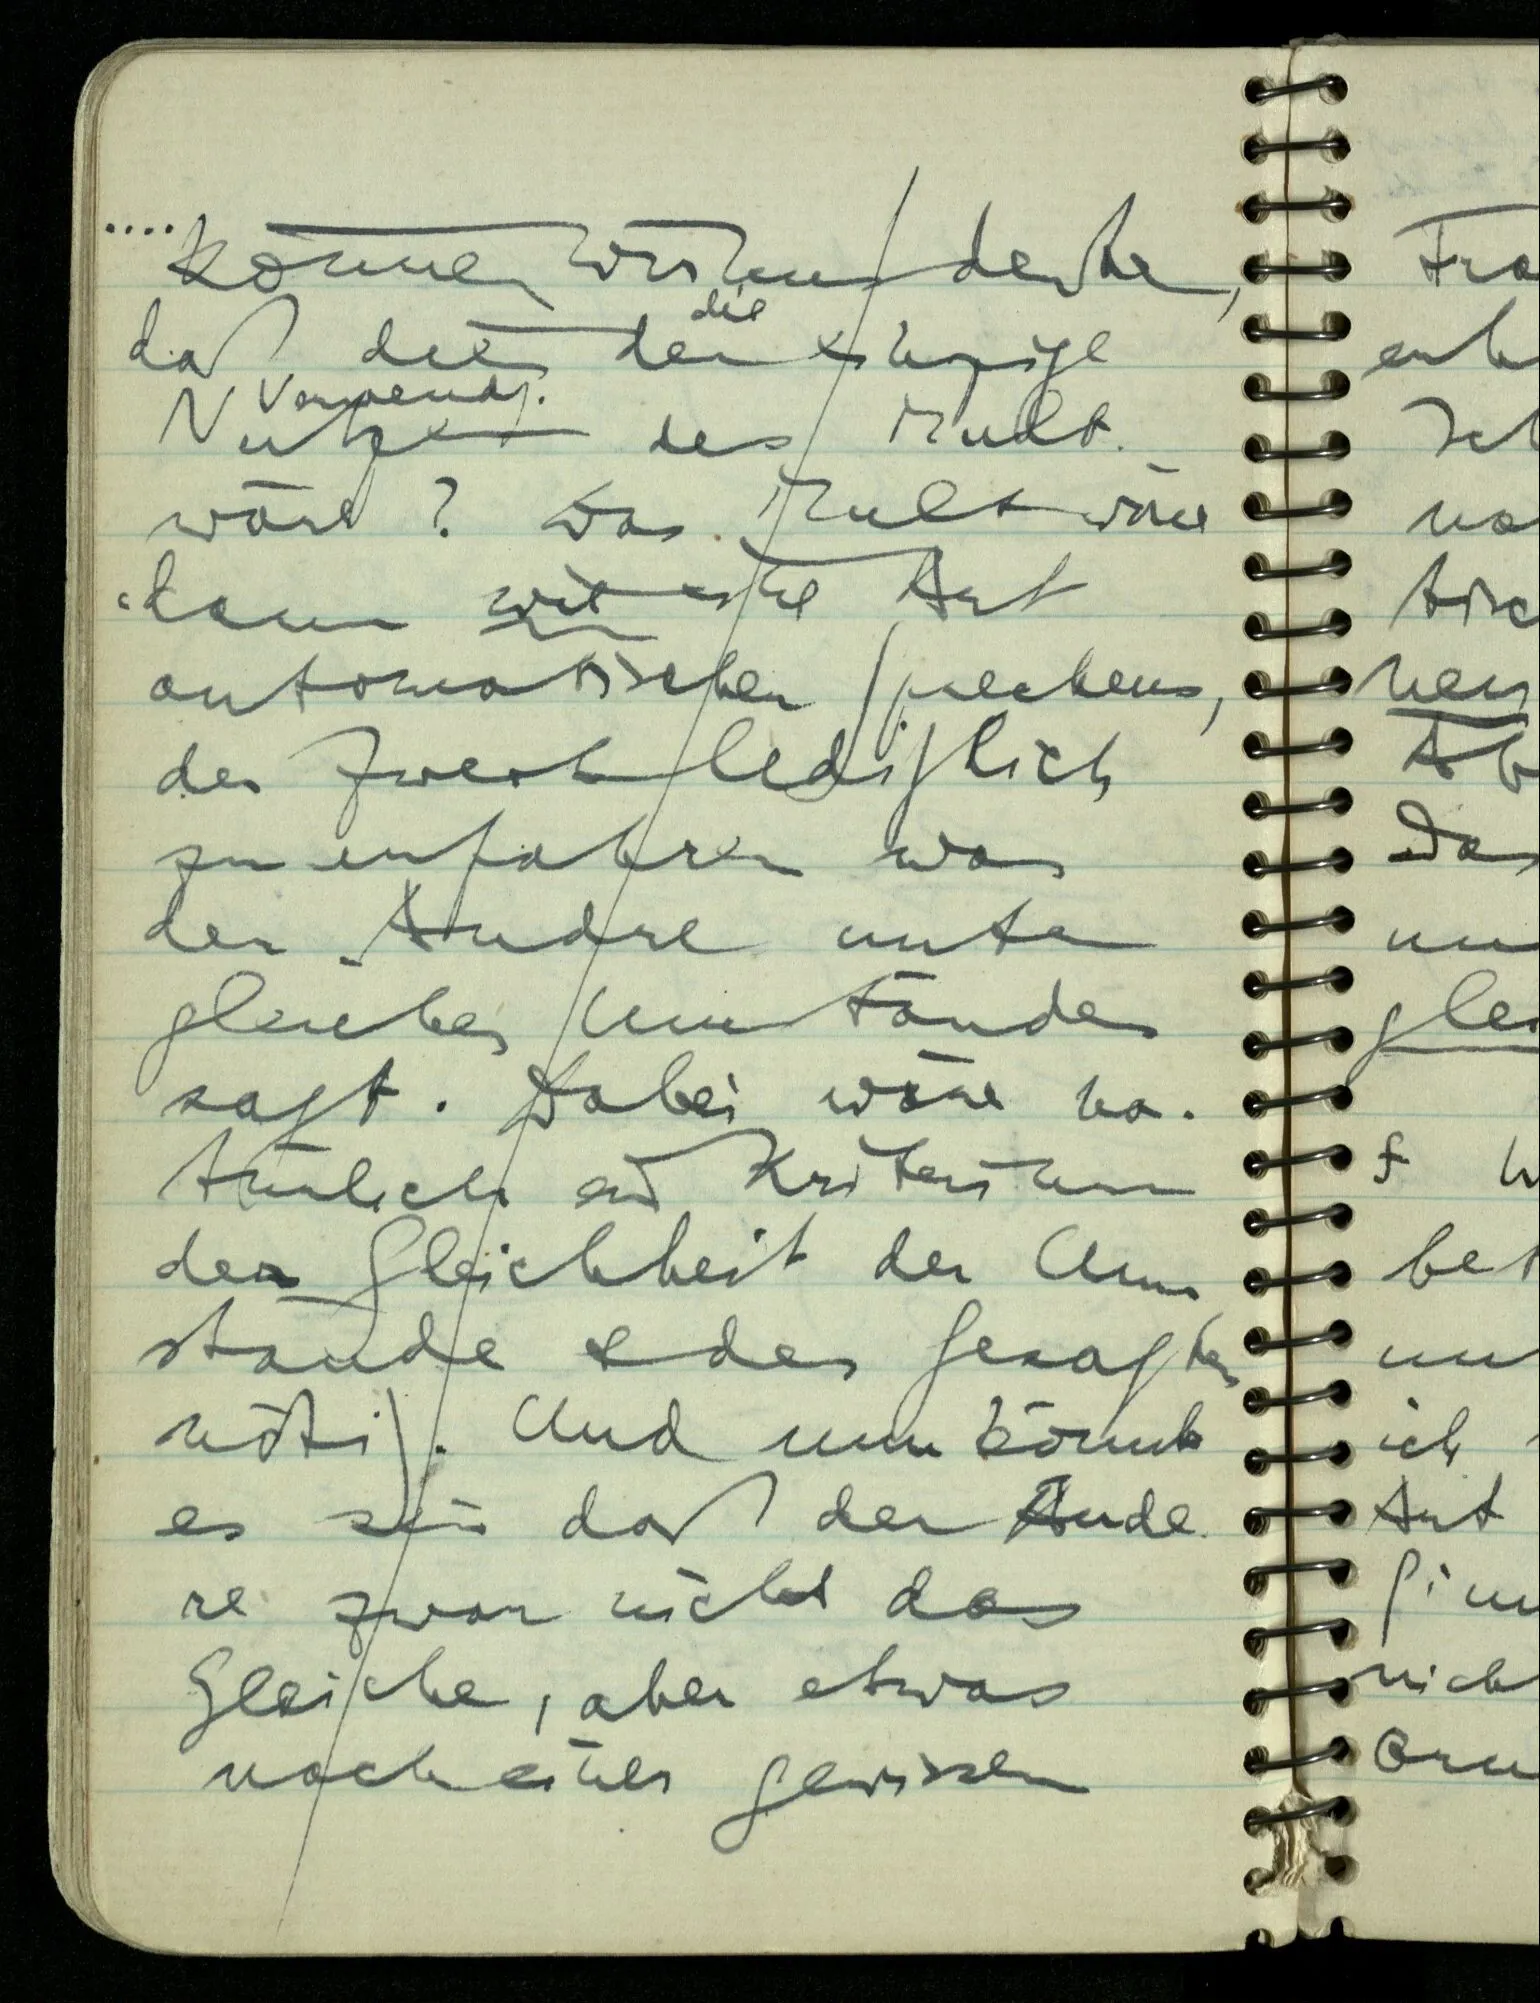 .... Können wir uns denken,
daß dies der die einzige
Nutzen Verwendg. des Mult.
wäre? Das Mult wäre
dann wie eine Art
automatischen Sprechens,
der Zweck lediglich
zu erfahren was
der Andre unter
gleichen Umständen
sagt. Dabei wäre na-
türlich ein Kriterium
der Gleichheit der Um
stände & des Gesagten
nötig. Und nun könnte
es sein daß der Ande
re zwar nicht das
Gleiche, aber etwas
nach einer gewissen
Fra
Ich
Das
glei
bet
ich
Art
nich